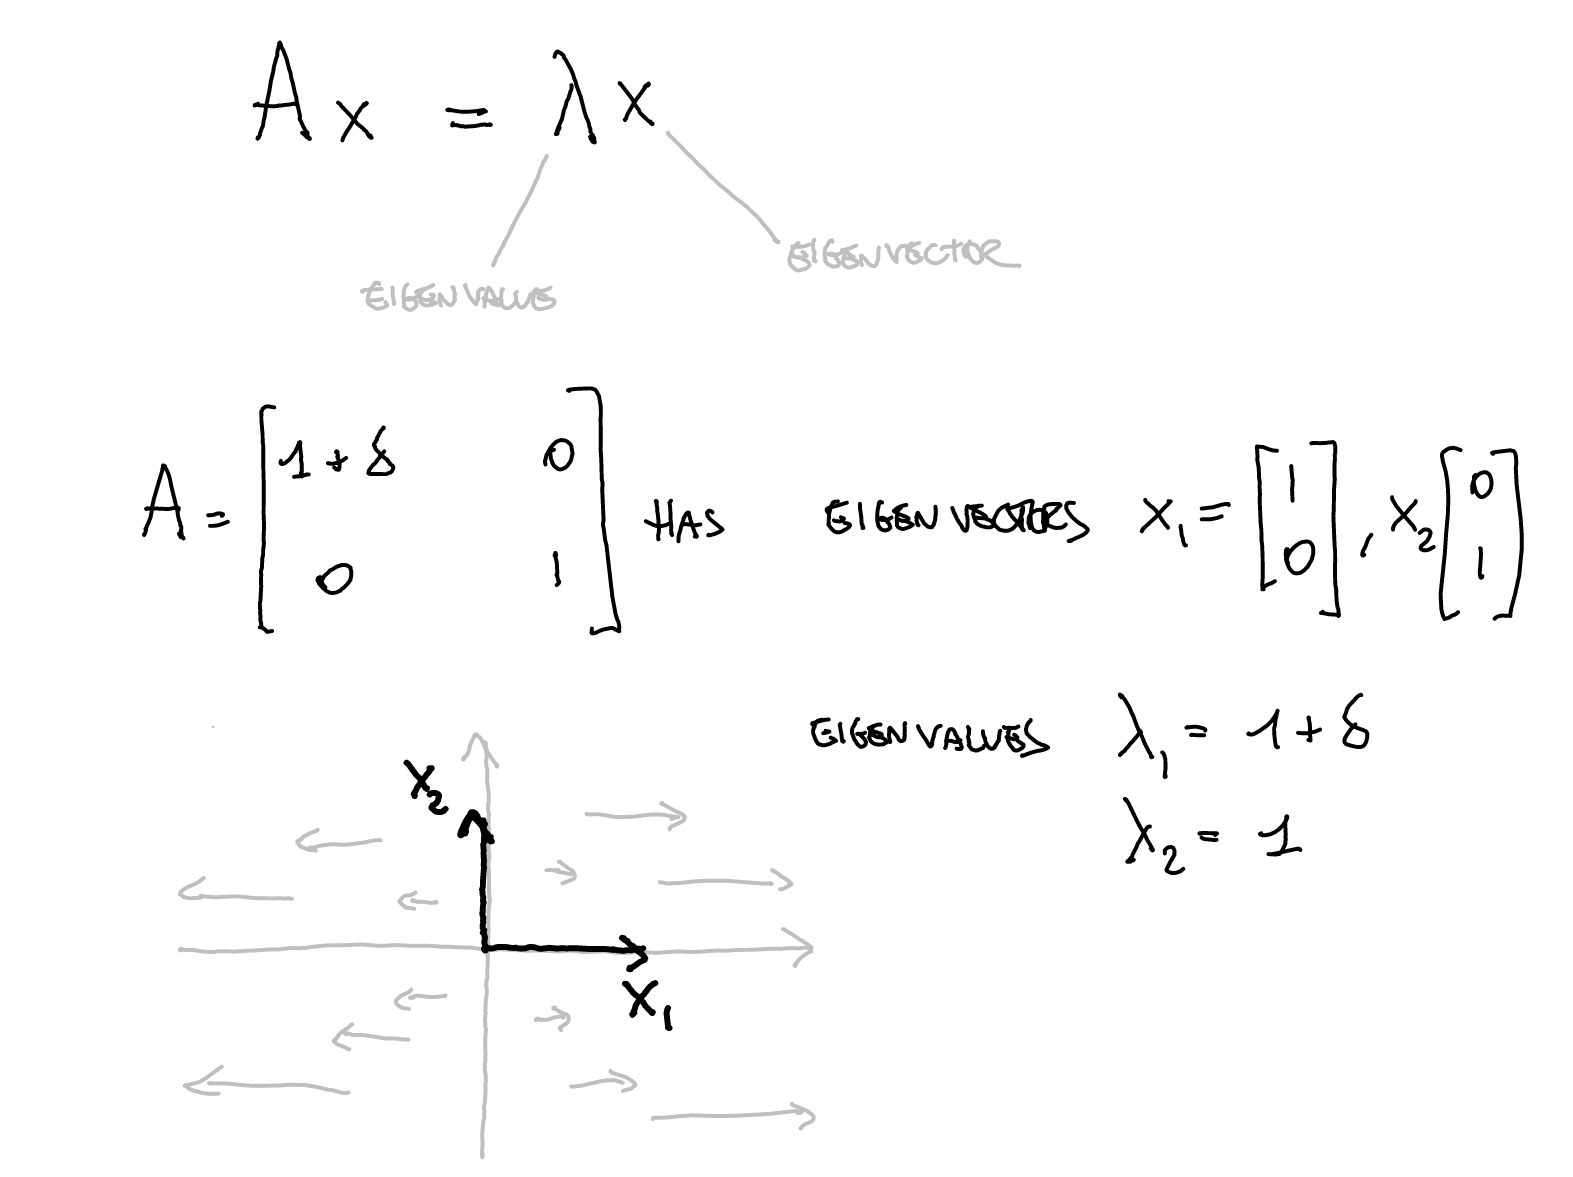 Ax = λx
EIGENVECTOR
EIGENVALUE
A = [1+δ 0
0 1] HAS EIGENVECTORS x₁ = [1
0], x₂ [0
1]
EIGENVALUES λ₁ = 1+δ
λ₂ = 1
x₂
x₁